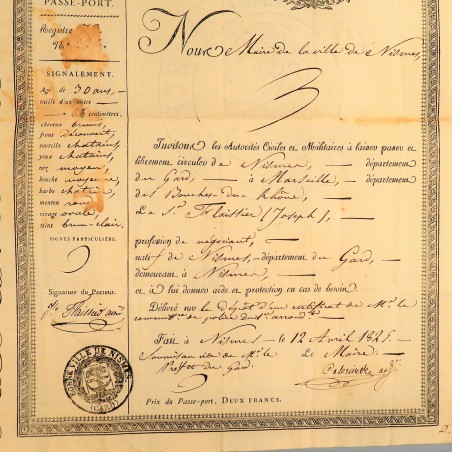 PASSE-PORT.
Registre
N.º
SIGNALEMENT.
Age de 30 ans,
taille d'un mètre
centimètres,
cheveux bruns,
front découvert,
sourcils chatains,
yeux chatains,
nez moyen,
bouche moyenne,
barbe chataine
menton rond
visage ovale,
teint brun-clair.
SIGNES PARTICULIERS.
Signature du Porteur.
BONNE VILLE DE NISMES.
(GARD)
Nous Maire de la ville de Nismes,
Invitons les Autorités Civiles et Militaires à laisser passer et
librement circuler de Nismes, département
du Gard, à Marseille, département
des Bouches-du Rhône,
Le S.r Flaissier (Joseph),
profession de négociant,
natif de Nismes, département du Gard,
demeurant à Nismes
et à lui donner aide et protection en cas de besoin.
Délivré sur le dépôt d'un certificat de M.r le
de police du arrond.t
Fait à Nismes le 12 Avril 1825.
M.r le Le Maire.
Préfet du Gard.
Prix du Passe-port, DEUX FRANCS.
2.